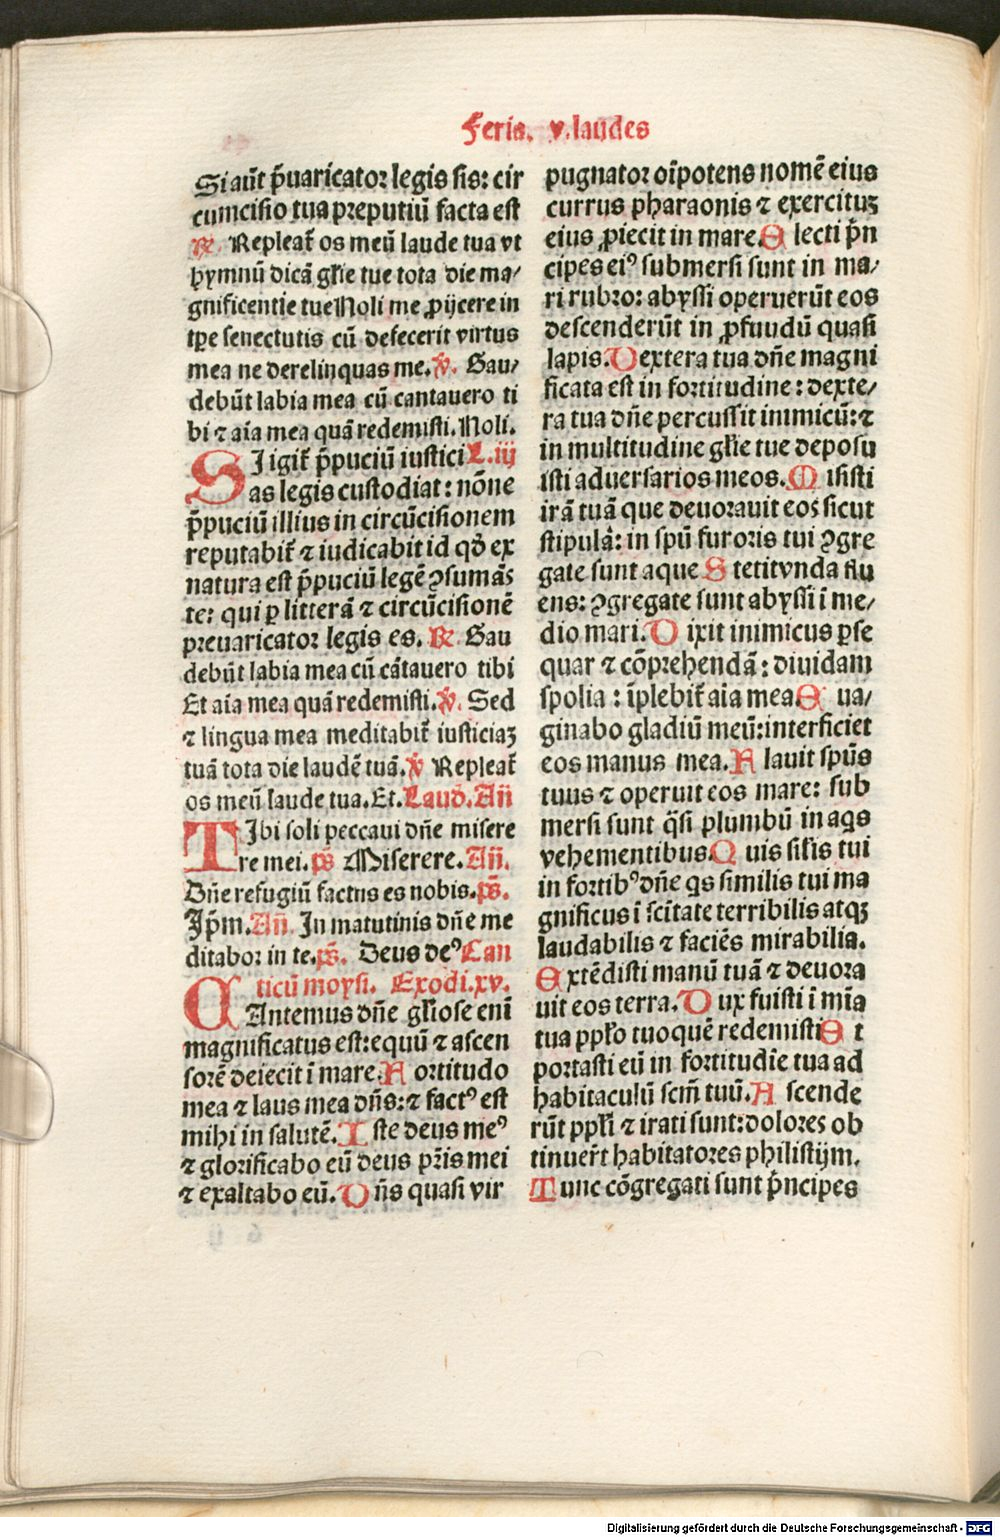 Feria. v. laudes
Si aūt p̄uaricator legis sis: cir
cumcisio tua preputiū facta est
℟. Repleat̄ os meū laude tua vt
hymnū dicā gl̄ie tue tota die ma/
gnificentie tue Noli me ꝓijcere in
tꝑe senectutis cū defecerit virtus
mea ne derelinquas me. ℣. Gau/
debūt labia mea cū cantauero ti
bi ⁊ aīa mea quā redemisti. Noli.
SI igit̄ p̄puciū iustici L. iij
as legis custodiat: nōne
p̄puciū illius in circūcisionem
reputabit̄ ⁊ iudicabit id qd̄ ex
natura est p̄puciū legē ꝯsumās
te: qui ꝑ litterā ⁊ circūcisionē
preuaricator legis es. ℟. Gau
debūt labia mea cū cātauero tibi
Et aīa mea quā redemisti. ℣. Sed
⁊ lingua mea meditabit̄ iusticiaꝫ
tuā tota die laudē tuā. ℣ Repleat̄
os meū laude tua. Et. Laud̄. Añ
TIbi soli peccaui dn̄e misere
re mei. ps̄ Miserere. Añ.
Dn̄e refugiū factus es nobis. ps̄.
Ip̄m. Añ. In matutinis dn̄e me
ditabor in te. ps̄. Deus deꝰ Can
ticū moysi. Exodi. xv.
CAntemus dn̄o gl̄iose enī
magnificatus est: equū ⁊ ascen
sorē deiecit ī mare. Fortitudo
mea ⁊ laus mea dn̄s: ⁊ factꝰ est
mihi in salutē. Iste deus meꝰ
⁊ glorificabo eū deus pr̄is mei
⁊ exaltabo eū. Dn̄s quasi vir
pugnator oīpotens nomē eius
currus pharaonis ⁊ exercituꝫ
eius ꝓiecit in mare. Electi p̄n
cipes eiꝰ submersi sunt in ma/
ri rubro: abyssi operuerūt eos
descenderūt in ꝓfundū quasi
lapis. Dextera tua dn̄e magni
ficata est in fortitudine: dexte/
ra tua dn̄e percussit inimicū: ⁊
in multitudine gl̄ie tue deposu
isti aduersarios meos. Misisti
irā tuā que deuorauit eos sicut
stipulā: in spū furoris tui ꝯgre
gate sunt aque Stetit vnda flu
ens: ꝯgregate sunt abyssi ī me/
dio mari. Dixit inimicus ꝑse
quar ⁊ cōprehendā: diuidam
spolia: īplebit̄ aīa mea. Eua/
ginabo gladiū meū: interficiet
eos manus mea. Flauit spūs
tuus ⁊ operuit eos mare: sub
mersi sunt q̄si plumbū in aqs
vehementibus. Quis sil̄is tui
in fortibꝰ dn̄e qs similis tui ma
gnificus ī scītate terribilis atqꝫ
laudabilis ⁊ faciēs mirabilia.
Extēdisti manū tuā ⁊ deuora
uit eos terra. Dux fuisti ī mīa
tua ppl̄o tuo quē redemisti Et
portasti eū in fortitudīe tua ad
habitaculū scm̄ tuū. Ascende
rūt ppl̄i ⁊ irati sunt: dolores ob
tinuer̄t habitatores philistijm.
Tunc cōgregati sunt p̄ncipes
Digitalisierung gefördert durch die Deutsche Forschungsgemeinschaft - DFG